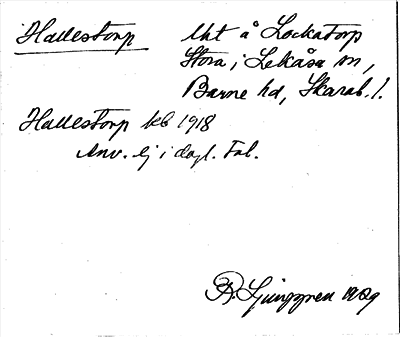 Hallestorp
Uht å Lockatorp
Stora i Lekåsa sn,
Barne hd, Skarab. l.
Hallestorp kb 1918
Anv. ej i dagl. tal.
R. Ljunggren 1929